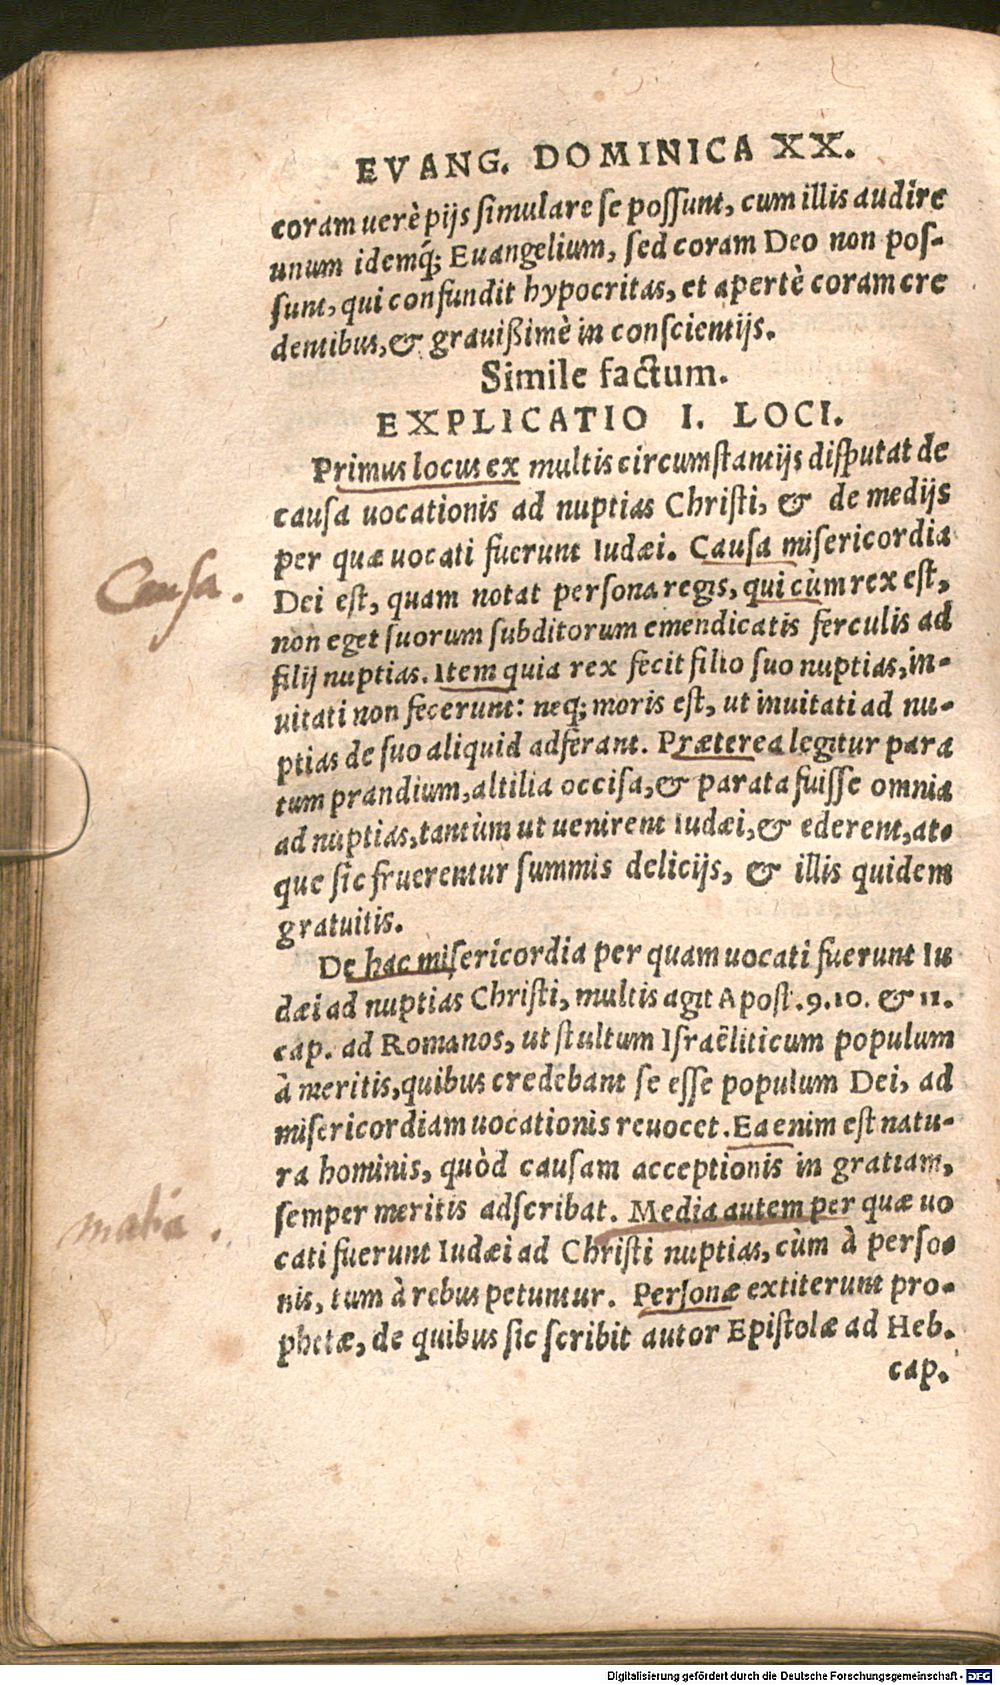 EVANG. DOMINICA XX.
coram uerè pijs simulare se possunt, cum illis audire
unum idemq́; Euangelium, sed coram Deo non pos-
sunt, qui confundit hypocritas, et apertè coram cre
dentibus, & grauißimè in conscientijs.
Simile factum.
EXPLICATIO I. LOCI.
Primus locus ex multis circumstantijs disputat de
causa uocationis ad nuptias Christi, & de medijs
per quæ uocati fuerunt Iudæi. Causa misericordia
Causa.
Dei est, quam notat persona regis, qui cùm rex est,
non eget suorum subditorum emendicatis ferculis ad
filij nuptias. Item quia rex fecit filio suo nuptias, in-
uitati non fecerunt: neq; moris est, ut inuitati ad nu-
ptias de suo aliquid adferant. Præterea legitur para
tum prandium, altilia occisa, & parata fuisse omnia
ad nuptias, tantùm ut uenirent Iudæi, & ederent, at-
que sic fruerentur summis delicijs, & illis quidem
gratuitis.
De hac misericordia per quam uocati fuerunt Iu
dæi ad nuptias Christi, multis agit Apost. 9. 10. & 11.
cap. ad Romanos, ut stultum Israëliticum populum
à meritis, quibus credebant se esse populum Dei, ad
misericordiam uocationis reuocet. Ea enim est natu-
ra hominis, quòd causam acceptionis in gratiam,
semper meritis adscribat. Media autem per quæ uo
cati fuerunt Iudæi ad Christi nuptias, cùm à perso-
nis, tum à rebus petuntur. Personæ extiterunt pro-
phetæ, de quibus sic scribit autor Epistolæ ad Heb.
cap.
Digitalisierung gefördert durch die Deutsche Forschungsgemeinschaft - DFG